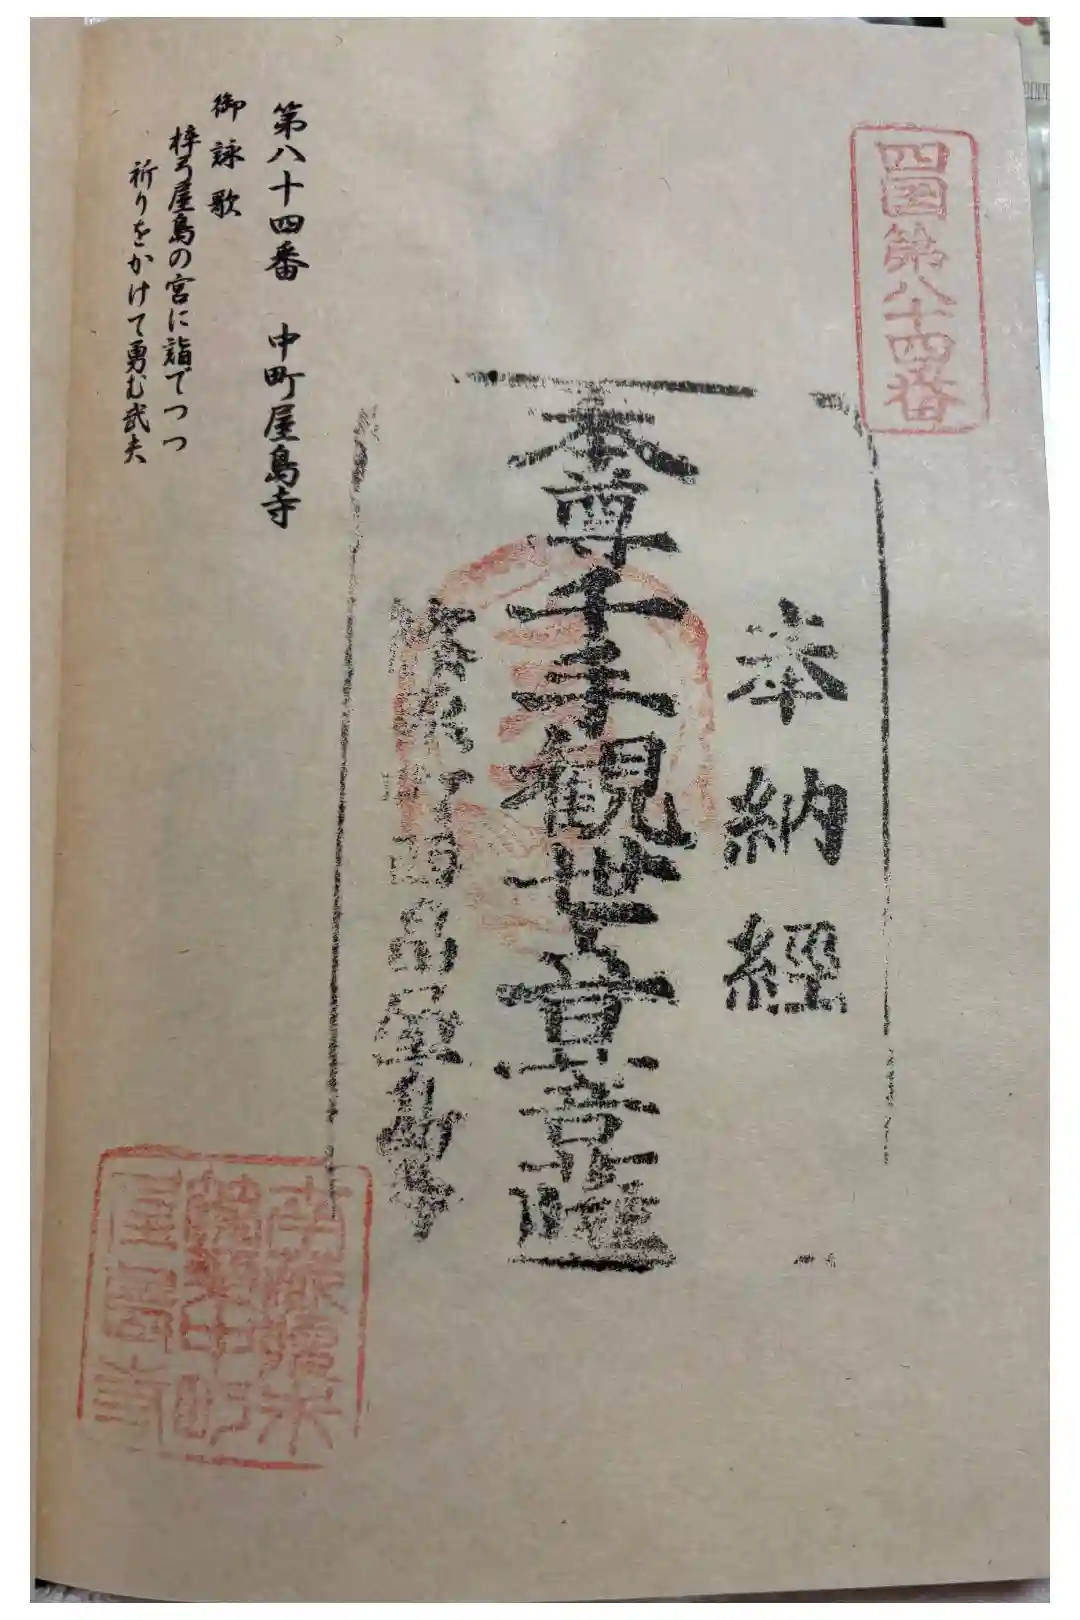 四国第八十四番
奉納經
本尊千手観世音菩薩
屋島寺
第八十四番　中町屋島寺
御詠歌
梓弓屋島の宮に詣でつつ
祈りをかけて勇む武夫